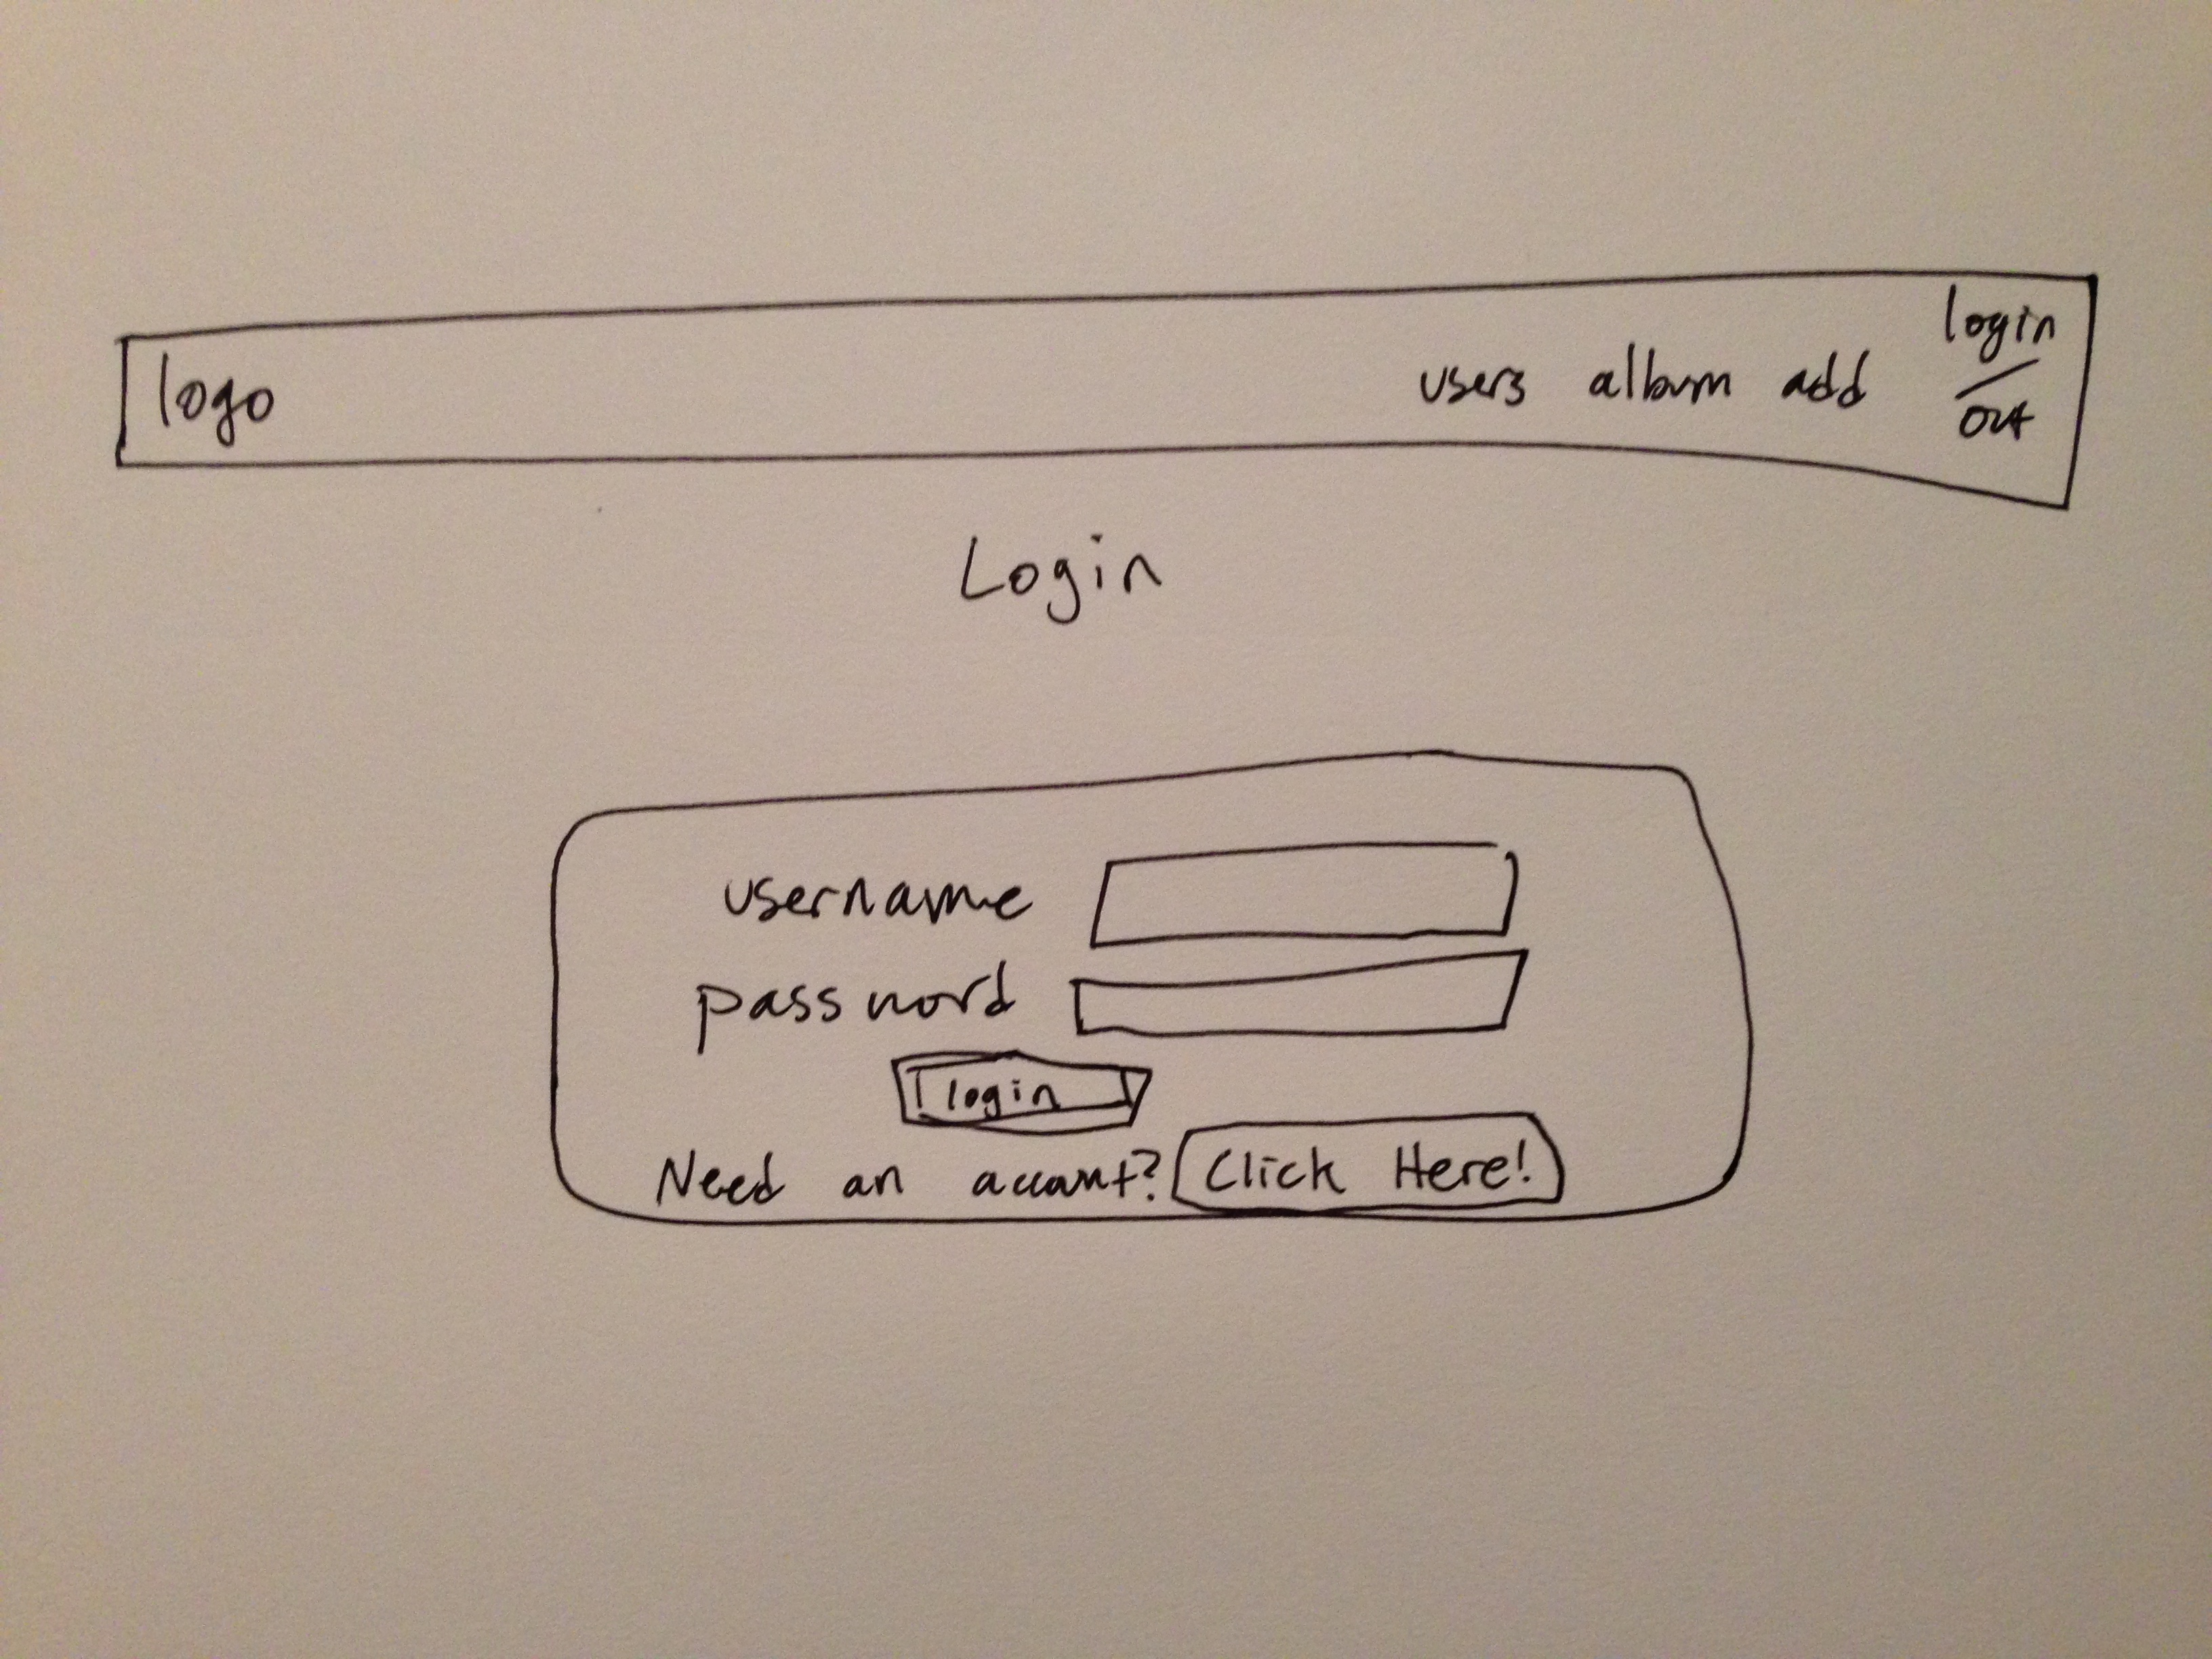 logo users album add login / out
Login
username
password
login
Need an account? Click Here!